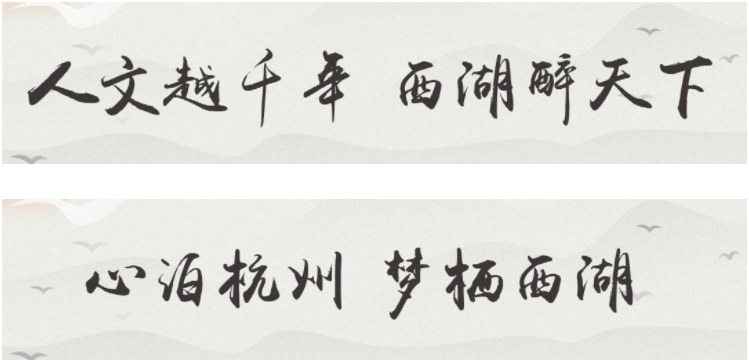 人文越千年 西湖醉天下
心泊杭州 梦栖西湖